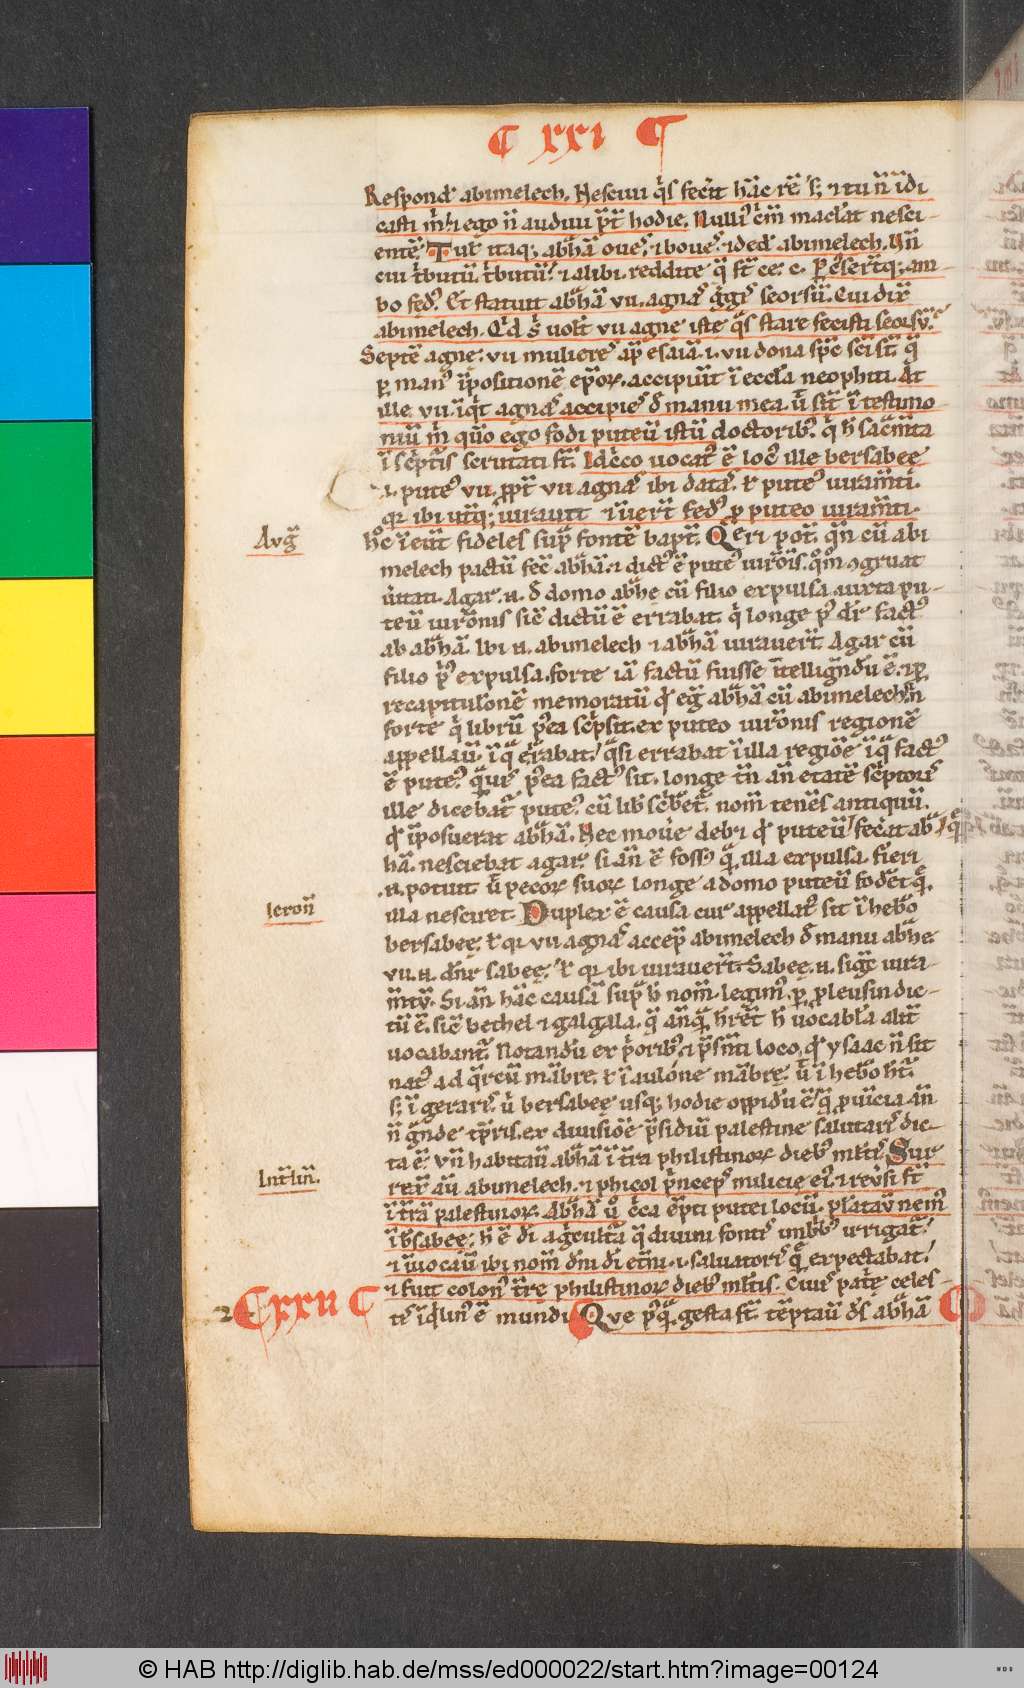 C XXI
Respond̛ abimelech. Nesciui q̇s fecit hāc rē s; ⁊ tu n̄ īdi
casti m̄ ⁊ ego n̄ audiui p̄t hodie. Nulli' cīm mactat nesci-
entē Tul̛ itaq; abhā oues ⁊ boues ⁊ ded̛ abimelech. Un̄
cui t̛butū t̛butū ⁊ alibi reddite q̄ st̄ ce. c. am
bo fed'. Et statuit abhā vii. agnas g̛gis seorsū. Cui dix̄
abimelech. Q'd s' uolt̄ vii agne iste q̄s stare fecisti seorsū.
Septē agne. vii mulieres ap̄ esaiā .i. vii dona sp̄c sci st̄ q̄
p man' īpositionē ep̄oꝝ. accipiūt ī eccl̄a neophiti. At
ille vii īq̇t agnas accipies đ manu mea. ū sīt ī testimo
niū m̄ qūo ego fodi puteū istū doctorib' q̇ h̄ sac̄mta
ī sc̄ptis scrutati st̄. Idc̄co uocat' ē loc' ille bersabee
.i. pute' vii. pp̄t vii agnas ibi datas. ł pute' iuram̄ti.
qꝛ ibi ut̄q; iurauit ⁊ īiert̄ fed' p puteo iuram̄ti.
Avḡ
h̄c īeūt fideles sup̄ fontē bapt̄. Qeri pot̄. q̄n cū abi
melech pactū fec̄ abhā. ⁊ dict' ē pute' iur̄oīs. q̇om ꝯgruat
ūitati. Agar .n. đ domo abhe cū filio expulsa iuxta pu-
teū iur̄onis sic̄ dictū ē errabat. q̇ longe p' dr̄ fact'
ab abhā. Ibi .n. abimelech ⁊ abhā iurauert̄. Agar cū
filio ṗ' expulsa. forte iā factū fuisse ītellig̅ndū ē. ⁊ p
recapitul̛onē memoratū q̛ eg̅ abhā cū abimelech. N̄
forte q̇ librū p'ea sc̄psit. ex puteo iur̄onis regionē
appellaū. ī q̄ errabat. q̄si errabat ī illa regiōe ī q̄ fact'
ē pute'. q̄uis p'ea fact' sit. longe tn̄ an̄ etatē sc̄ptoris
ille dicebat̄ pute'. cū lib̄ sc̄bet̄. nom̄ tenēs antiquū.
q̛ īposuerat abhā. Nec mouē deb⁊ q̛ puteū fecit ab q̄
hā. nesciebat agar. si an̄ ē foss' q̄ illa expulsa. fieri
.n. potuit ū pecoꝝ suoꝝ longe a domo puteū fodet̄ q̄
Ieron̄
illa nesciret. Duplex ē causa cur appellat' sit ī hebo
bersabee. ł qꝛ vii agnas accep̄ abimelech đ manu abhe.
vii .n. dn̄r sabee. ł qꝛ ibi iurauert̄. Sabee .n. sig̅t iura-
m̄tū. Si an̄ hāc causā sup̄ h̄ nom̄ legim'. p pleusin dic-
tū ē. sic̄ bethel ⁊ galgala. q̄ an̄q̄ h̄ret h̄ uocabl̄a alit̄
uocabant̄. Notandū ex ṗorib' ⁊ p̄sn̄ti loco, q̛ ysaac n̄ sit
nat' ad q̛rcū mābre. ł ī aulone mābre. ū ī hebo ht̄.
s; ī geraris. ū bersabee usq; hodie oppidū ē. q̄ ꝓuīcia an̄
n̄ g̅nde tp̄ris. ex diuisiōe p̄sidiū palestine salutaris dic-
ta ē. Vn̄ habitaū abhā ī tr̄a philistinoꝝ dieb' mlt̄is. Sur
Int̄lin̄.
rex̄ aū abimelech. ⁊ phicol ṗnceps milicie ei'. ⁊ reūsi st̄
ī tr̄a palestinoꝝ. Abhā ū c̄ca ep̄ti putei locū. plātaū nem'
ī b̄sabee. h̄ ē di ag̛cultā q̄ diuini fontis imb'b' irrigat.
⁊ īuocaū ibi nom̄ dn̄i di et̄ni .i. saluatoris q̄ expectabat.
⁊ fuit colon' tr̄e philistinoꝝ dieb' mlt̄is. Ciuis patē celes-
CXXII C
tē īq̇lin' ē mundi. Qve p'q̄ gesta st̄. tēptaū ds̄ abhā
© HAB http://diglib.hab.de/mss/ed000022/start.htm?image=00124